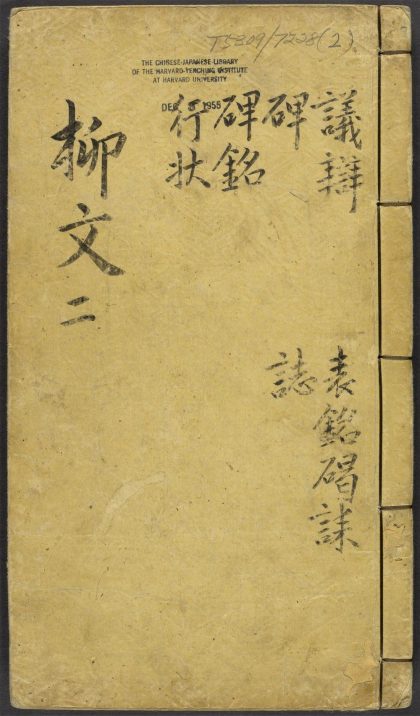 T5309/7228(2)
THE CHINESE-JAPANESE LIBRARY
OF THE HARVARD-YENCHING INSTITUTE
AT HARVARD UNIVERSITY
1955
議辯
碑
碑銘
行状
表銘碣誄
誌
柳文二